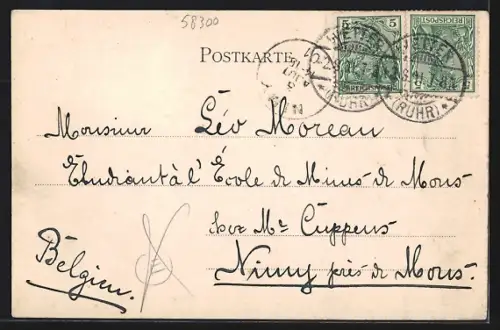 58300
POSTKARTE
5 5
REICHSPOST
(RUHR)
(RUHR)
Monsieur Léo Moreau
Etudiant à l'École de Mines de Mons
chez Mr Cuppens
Nimy près de Mons.
Belgien.